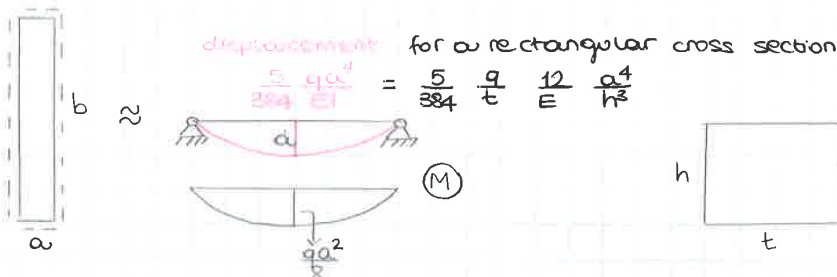 displacement for a rectangular cross section
5/384 qa⁴/EI = 5/384 q/t 12/E a⁴/h³
b
≈
a
M
h
a
t
qa²/8